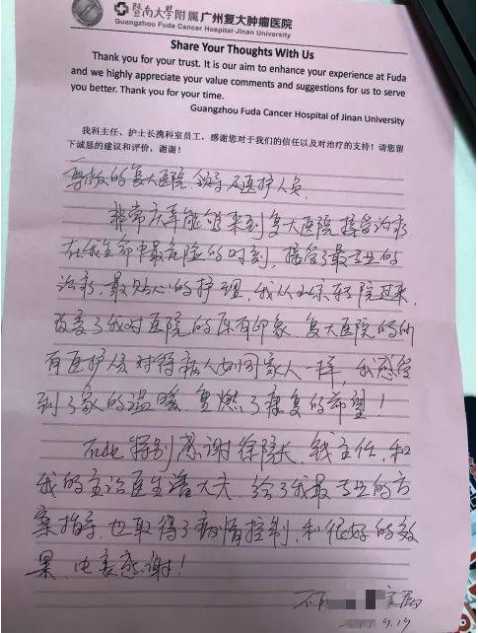 暨南大學附属 广州复大肿瘤医院
Guangzhou Fuda Cancer Hospital·Jinan University
Share Your Thoughts With Us
Thank you for your trust. It is our aim to enhance your experience at Fuda
and we highly appreciate your value comments and suggestions for us to serve
you better. Thank you for your time.
Guangzhou Fuda Cancer Hospital of Jinan University
我科主任、护士长携科室员工，感谢您对于我们的信任以及对治疗的支持！请您留
下诚恳的建议和评价，谢谢！
尊敬的复大医院领导及医护人员
非常庆幸能够来到复大医院接受治疗
在我生命中最危险的时刻，接受了最专业的
治疗，最贴心的护理，我从北京转院过来，
改变了我对医院的原有印象，复大医院的所
有医护人员对待病人如同家人一样，我感受
到了家的温暖，重燃了康复的希望！
在此特别感谢徐院长，钱主任，和
我的主治医生潘大夫，给了我最专业的方
案指导，也取得了病情控制，和很好的效
果，由衷感谢！
9.19